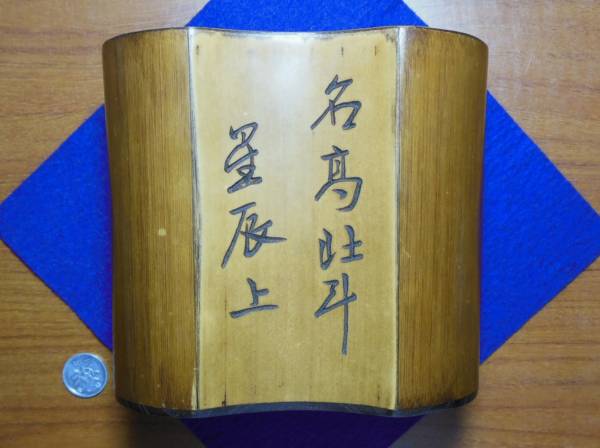 名高北斗
星辰上